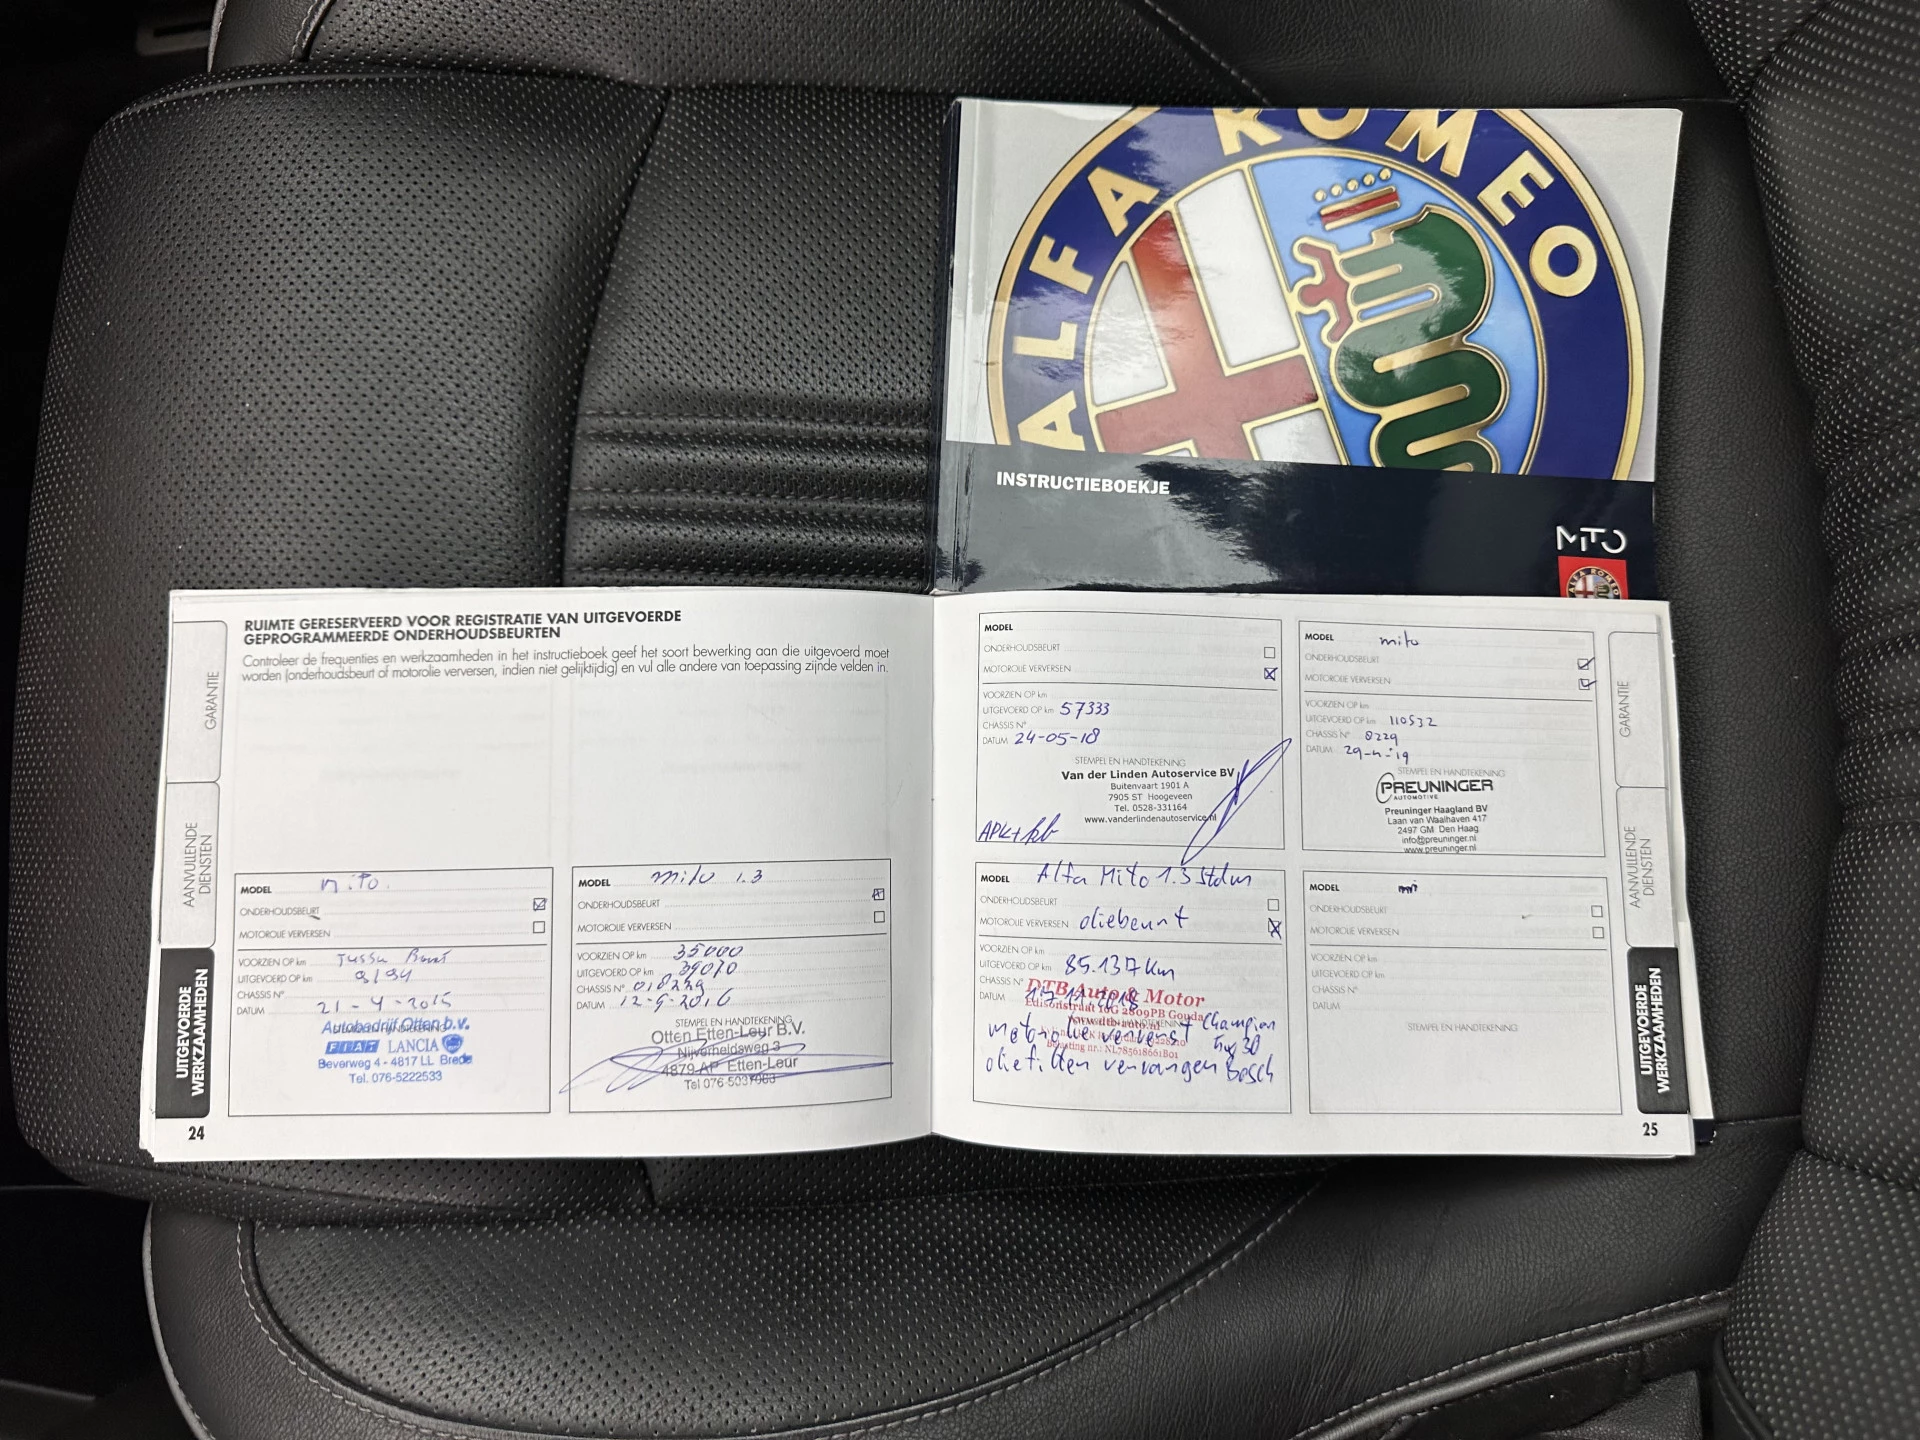 ALFA ROMEO
INSTRUCTIEBOEKJE
MiTO
ALFA ROMEO
RUIMTE GERESERVEERD VOOR REGISTRATIE VAN UITGEVOERDE
GEPROGRAMMEERDE ONDERHOUDSBEURTEN
Controleer de frequenties en werkzaamheden in het instructieboek geef het soort bewerking aan die uitgevoerd moet
worden (onderhoudsbeurt of motorolie verversen, indien niet gelijktijdig) en vul alle andere van toepassing zijnde velden in.
GARANTIE
AANVULLENDE
DIENSTEN
UITGEVOERDE
WERKZAAMHEDEN
MODEL mito.
ONDERHOUDSBEURT
MOTOROLIE VERVERSEN
VOORZIEN OP km
UITGEVOERD OP km
CHASSIS N°
DATUM 21-4-2015
Autobedrijf Otten b.v.
FIAT LANCIA
Beverweg 4 - 4817 LL Breda
Tel. 076-5222533
24
MODEL mito 1.3
ONDERHOUDSBEURT
MOTOROLIE VERVERSEN
VOORZIEN OP km 35000
UITGEVOERD OP km 39070
CHASSIS N° 018229
DATUM 12-9-2016
STEMPEL EN HANDTEKENING
Otten Etten-Leur B.V.
Nijverheidsweg 3
4879 AP Etten-Leur
Tel 076-5037083
MODEL
ONDERHOUDSBEURT
MOTOROLIE VERVERSEN
VOORZIEN OP km
UITGEVOERD OP km 57333
CHASSIS N°
DATUM 24-05-18
STEMPEL EN HANDTEKENING
Van der Linden Autoservice BV
Buitenvaart 1901 A
7905 ST Hoogeveen
Tel. 0528-331164
www.vanderlindenautoservice.nl
APK+kb
MODEL mito
ONDERHOUDSBEURT
MOTOROLIE VERVERSEN
VOORZIEN OP km
UITGEVOERD OP km 110532
CHASSIS N° 8229
DATUM
STEMPEL EN HANDTEKENING
PREUNINGER
AUTOMOTIVE
Preuninger Haagland BV
Laan van Waalhaven 417
2497 GM Den Haag
info@preuninger.nl
www.preuninger.nl
MODEL Alfa Mito 1.3 Stdm
ONDERHOUDSBEURT
MOTOROLIE VERVERSEN oliebeurt
VOORZIEN OP km
UITGEVOERD OP km 85.137 Km
CHASSIS N°
DATUM
DTB Auto & Motor
Edisonstraat 16G 2809PB Gouda
www.dtb-auto.nl
motorolie ververst Champion
oliefilter vervangen Bosch
MODEL
ONDERHOUDSBEURT
MOTOROLIE VERVERSEN
VOORZIEN OP km
UITGEVOERD OP km
CHASSIS N°
DATUM
STEMPEL EN HANDTEKENING
GARANTIE
AANVULLENDE
DIENSTEN
UITGEVOERDE
WERKZAAMHEDEN
25